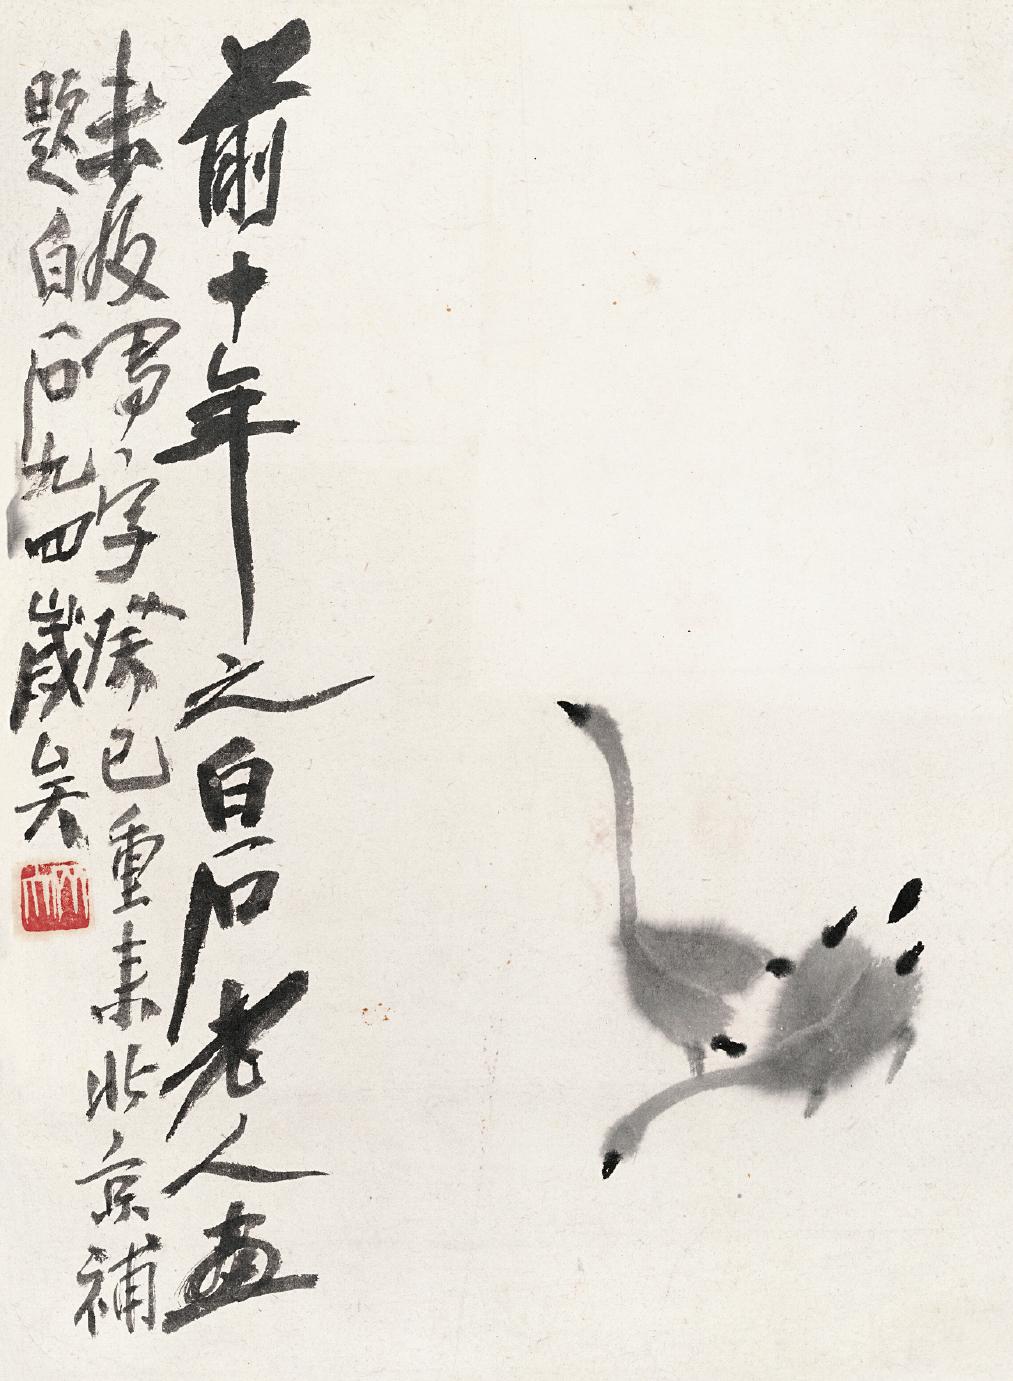 前十年之白石老人画
未及写字癸巳重来北京補
題白石九四歲矣